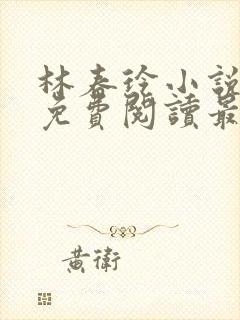 林春铃小說
免費閱讀最
黃衛